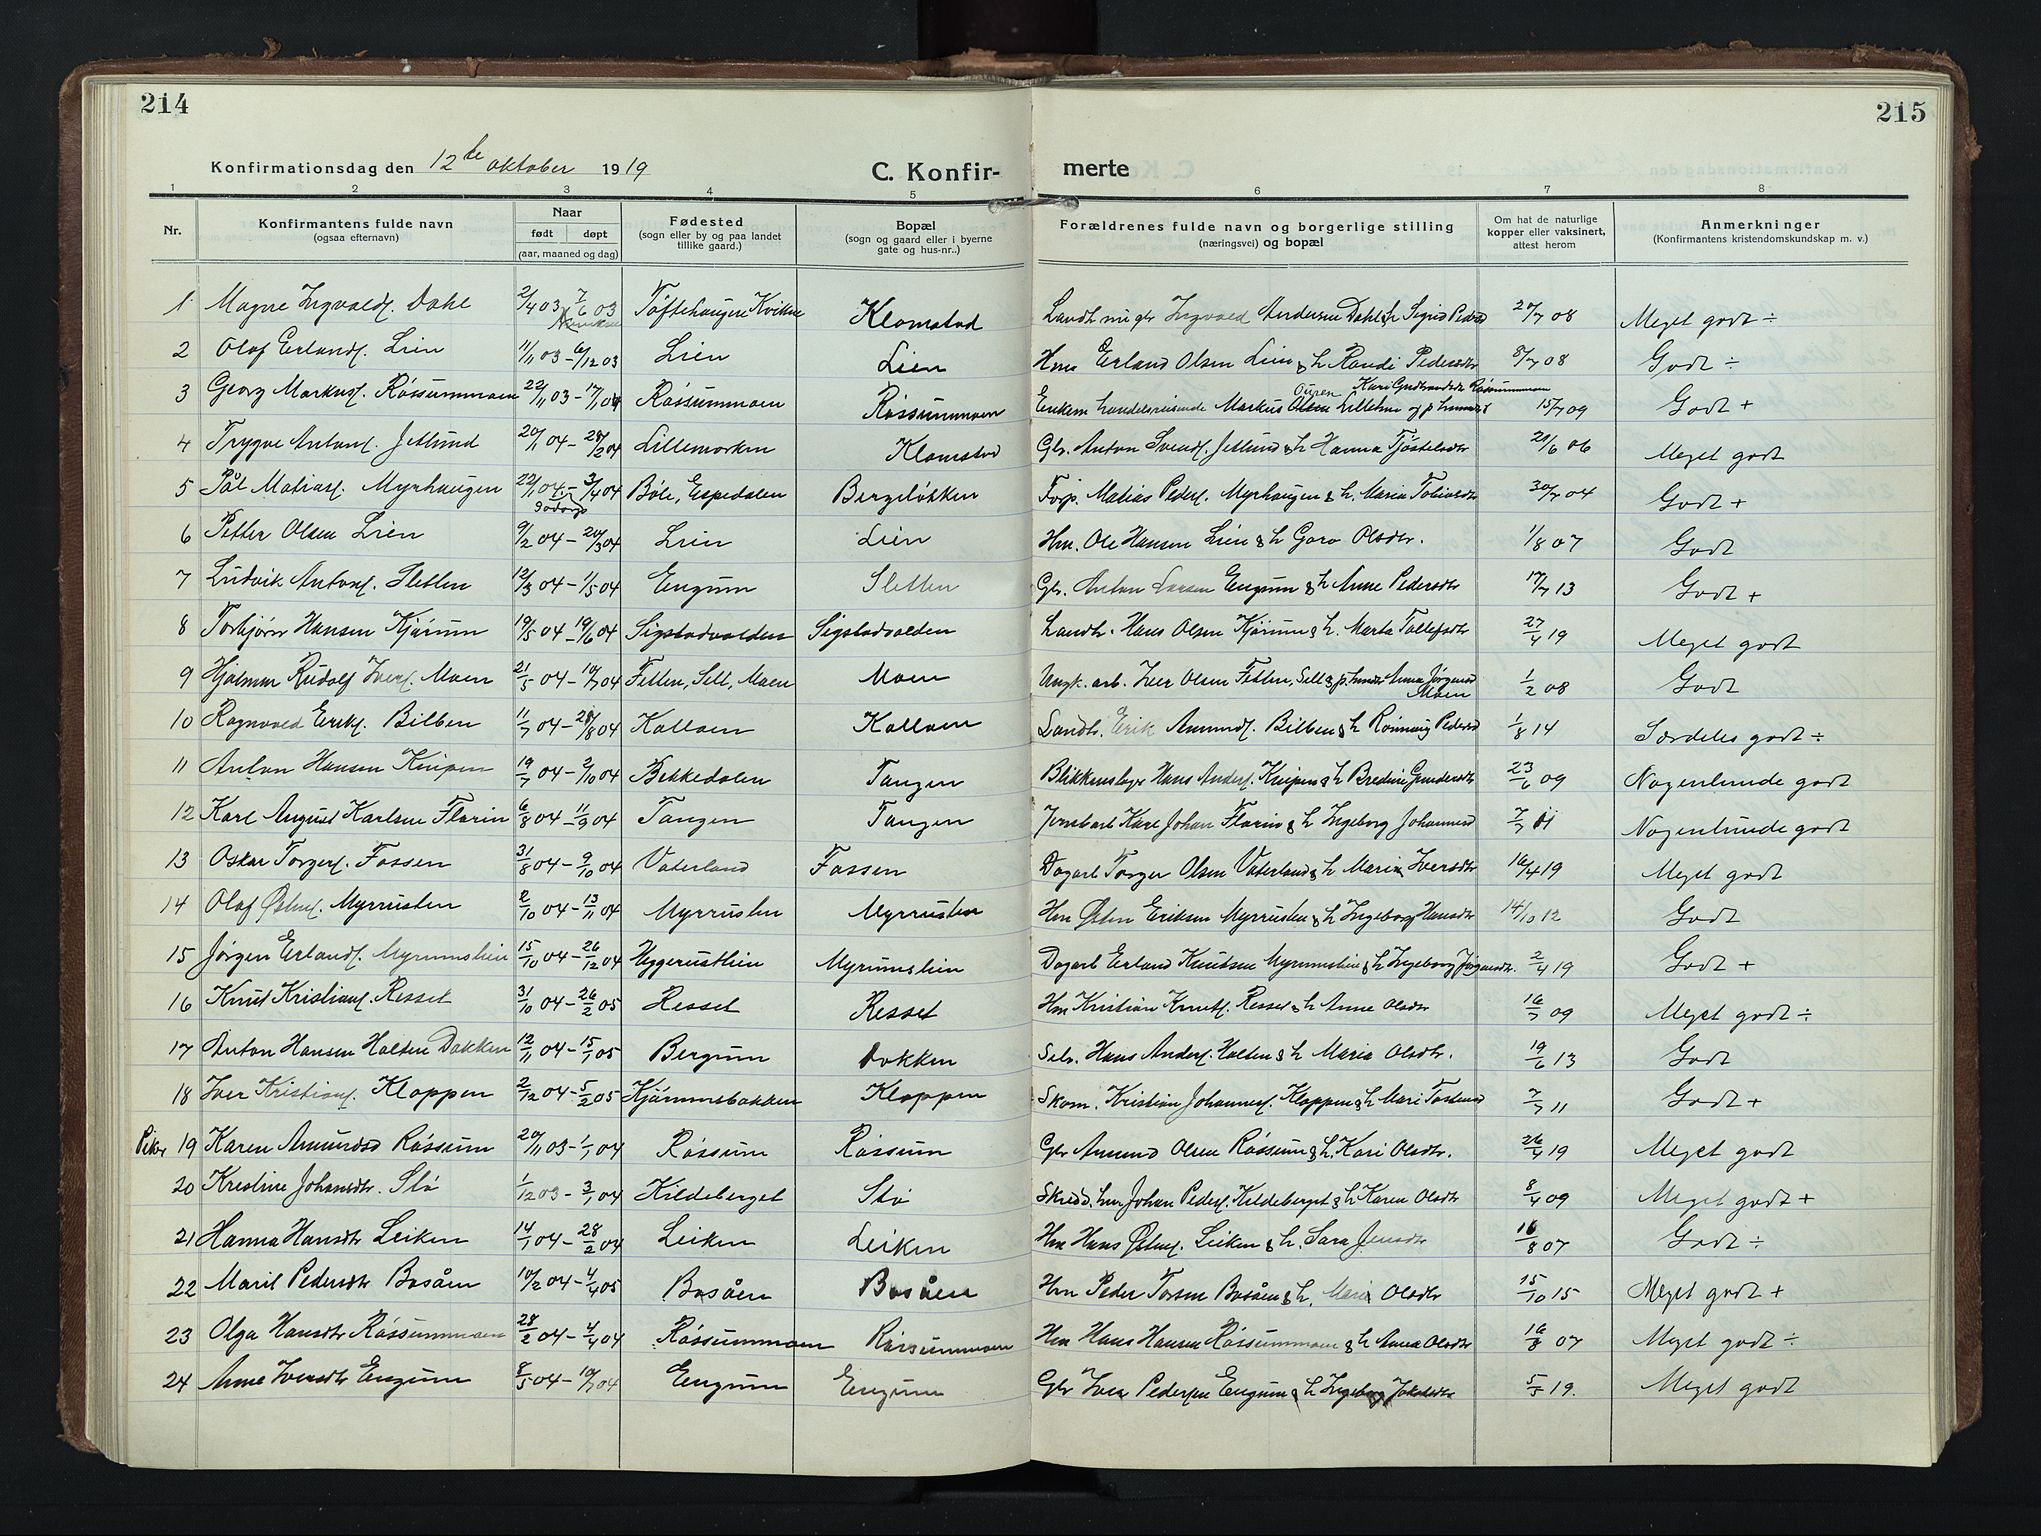 214
215
Konfirmationsdag den 12te oktober 1919 C. Konfir- merte
1 2 3 4 5 6 7 8
Nr. Konfirmantens fulde navn (ogsaa efternavn) Naar født døpt (aar, maaned og dag) Fødested (sogn eller by og paa landet tillike gaard.) Bopæl (sogn og gaard eller i byerne gate og hus-nr..) Forældrenes fulde navn og borgerlige stilling (næringsvei) og bopæl Om hat de naturlige kopper eller vaksinert, attest herom Anmerkninger (Konfirmantens kristendomskundskap m. v.)
1 Magne Ingvalds. Dahl 2/4 03 7/6 03 Töftehaugen Kvikne Klomstad Landh. Ingvald Andersen Dahl & h Sigrid Pedersd 27/7 08 Meget godt ÷
2 Olaf Erlands. Lien 11/11 03 - 6/12 03 Lien Lien Hm Erland Olsen Lien & h Randi Pedersdtr 8/7 08 Godt ÷
3 Georg Markus. Røssummoen 22/11 03 - 17/1 04 Røssummoen Røssummoen Enkem handelsreisende Markus Olsen Ouren Lillehm og p. Kari Gudbrandsdtr Røssummoen 15/7 09 Godt +
4 Trygve Antons. Jetlund 20/1 04 - 28/2 04 Lillemorken Klomstad Gbr. Anton Svends. Jetlund & h Hanna Tjöstelsdtr 20/6 06 Meget godt
5 Pål Matias. Myrhaugen 22/1 04 - 3/4 04 Böle, Espedalen Bergeløkken Forp. Matias Peders. Myrhaugen & h. Maria Tobiasdtr 30/7 04 Godt +
6 Petter Olsen Lien 9/2 04 - 20/3 04 Lien Lien Hm. Ole Hansen Lien & h Goro Olsdtr. 1/8 07 Godt
7 Ludvik Antons. Sletten 12/3 04 - 1/5 04 Engum Sletten Gbr. Anton Larsen Engum & h Anne Pedersdtr 17/7 13 Godt +
8 Torbjörn Hansen Kjörum 19/5 04 - 19/6 04 Sigstadvolden Sigstadvolden Landh. Hans Olsen Kjörum & h. Marta Tollefsdtr 27/4 19 Meget godt
9 Hjalmar Rudolf Ivers. Moen 21/5 04 - 10/7 04 Fetten, Sell, Moen Moen Ungk. arb. Iver Olsen Fetten, Sell & p. Anna Jörgensd Moen 1/2 08 Godt
10 Ragnvald Eriks. Bilben 11/7 04 - 28/8 04 Kolloen Kolloen Landh. Erik Amunds. Bilben & h Rönnaug Pedersd 1/8 14 Særdeles godt ÷
11 Anton Hansen Knipen 19/7 04 - 2/10 04 Bekkedalen Tangen Blikkenslager Hans Anders. Knipen & h Bredine Gundersdtr 23/6 09 Nogenlunde godt
12 Karl August Karlsen Florin 6/8 04 - 11/9 04 Tangen Tangen Jernbarb Karl Johan Florin & h Ingeborg Johannesd 7/7 11 Nogenlunde godt
13 Oskar Torgers. Fossen 31/8 04 - 9/10 04 Vaterland Fossen Dagarb Torger Olsen Vaterland & h Maria Iversdtr 16/4 19 Meget godt
14 Olaf Østens. Myrrusten 2/10 04 - 13/11 04 Myrrusten Myrrusten Hm Østen Eriksen Myrrusten & h Ingeborg Hansdtr 14/10 12 Godt
15 Jörgen Erlands. Myrumslien 15/10 04 - 26/12 04 Heggerustlien Myrumslien Dagarb Erland Knudsen Myrumslien & h Ingeborg Jörgensdtr. 2/4 19 Godt +
16 Knut Kristians. Resset 31/10 04 - 26/2 05 Resset Resset Hm Kristian Knuts. Resset & h Anne Olsdtr 16/7 09 Meget godt ÷
17 Anton Hansen Holten Dokken 12/11 04 - 15/1 05 Bergum Dokken Selv. Hans Anders. Holten & h Maria Olsdtr. 19/6 13 Godt
18 Iver Kristians. Kloppen 2/12 04 - 5/2 05 Kjörumsbakken Kloppen Skom. Kristian Johannes. Kloppen & h Mari Tostensd 7/7 11 Godt +
Piker 19 Karen Amundsd Røssum 20/11 03 - 1/1 04 Røssum Røssum Gbr Amund Olsen Røssum & h. Kari Olsdtr. 26/4 19 Meget godt
20 Kristine Johansdtr. Stö 1/12 03 - 3/1 04 Kildeberget Stö Skredd. hm Johan Peders. Kildeberget & h Karen Olsdtr 8/4 09 Meget godt +
21 Hanna Hansdtr Leiken 14/1 04 - 28/2 04 Leiken Leiken Hm Hans Østens. Leiken & h. Sara Jensdtr 16/8 07 Godt ÷
22 Marit Pedersdtr Bosåen 10/2 04 - 4/4 05 Bosåen Bosåen Hm Peder Torsen Bosåen & h. Mari Olsdtr 15/10 15 Meget godt +
23 Olga Hansdtr Røssummoen 28/2 04 - 4/4 04 Røssummoen Røssummoen Hm Hans Hansen Røssummoen & h Anna Olsdtr 16/8 07 Meget godt ÷
24 Anne Iversdtr Engum 8/5 04 - 10/7 04 Engum Engum Gbr Iver Pedersen Engum & h Ingeborg Jakobsdtr 5/5 19. Meget godt